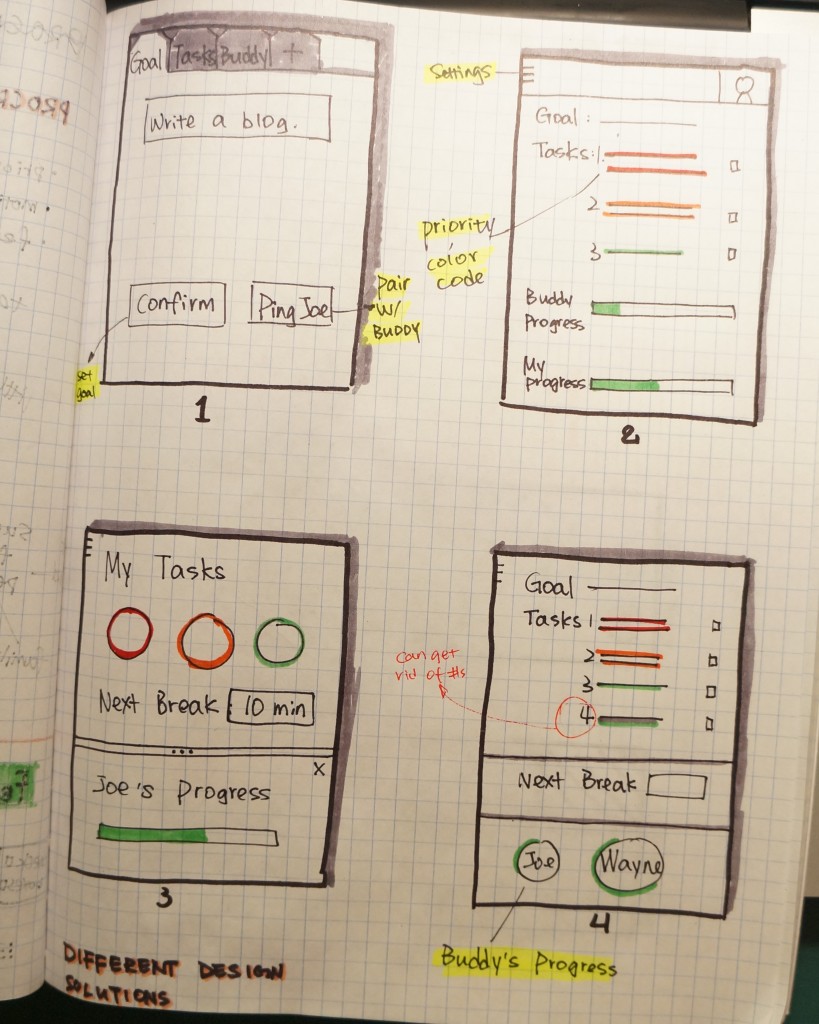 Goal Tasks Buddy +
Write a blog.
Confirm
Ping Joe
set
goal
Pair
W/
BUDDY
1
Settings
Goal :
Tasks: 1.
2
3
priority
color
code
Buddy
Progress
My
progress
2
My Tasks
Next Break : 10 min
x
Joe's Progress
3
Goal
Tasks 1
2
3
4
can get
rid of #s
Next Break
Joe
Wayne
4
Buddy's Progress
DIFFERENT DESIGN
SOLUTIONS